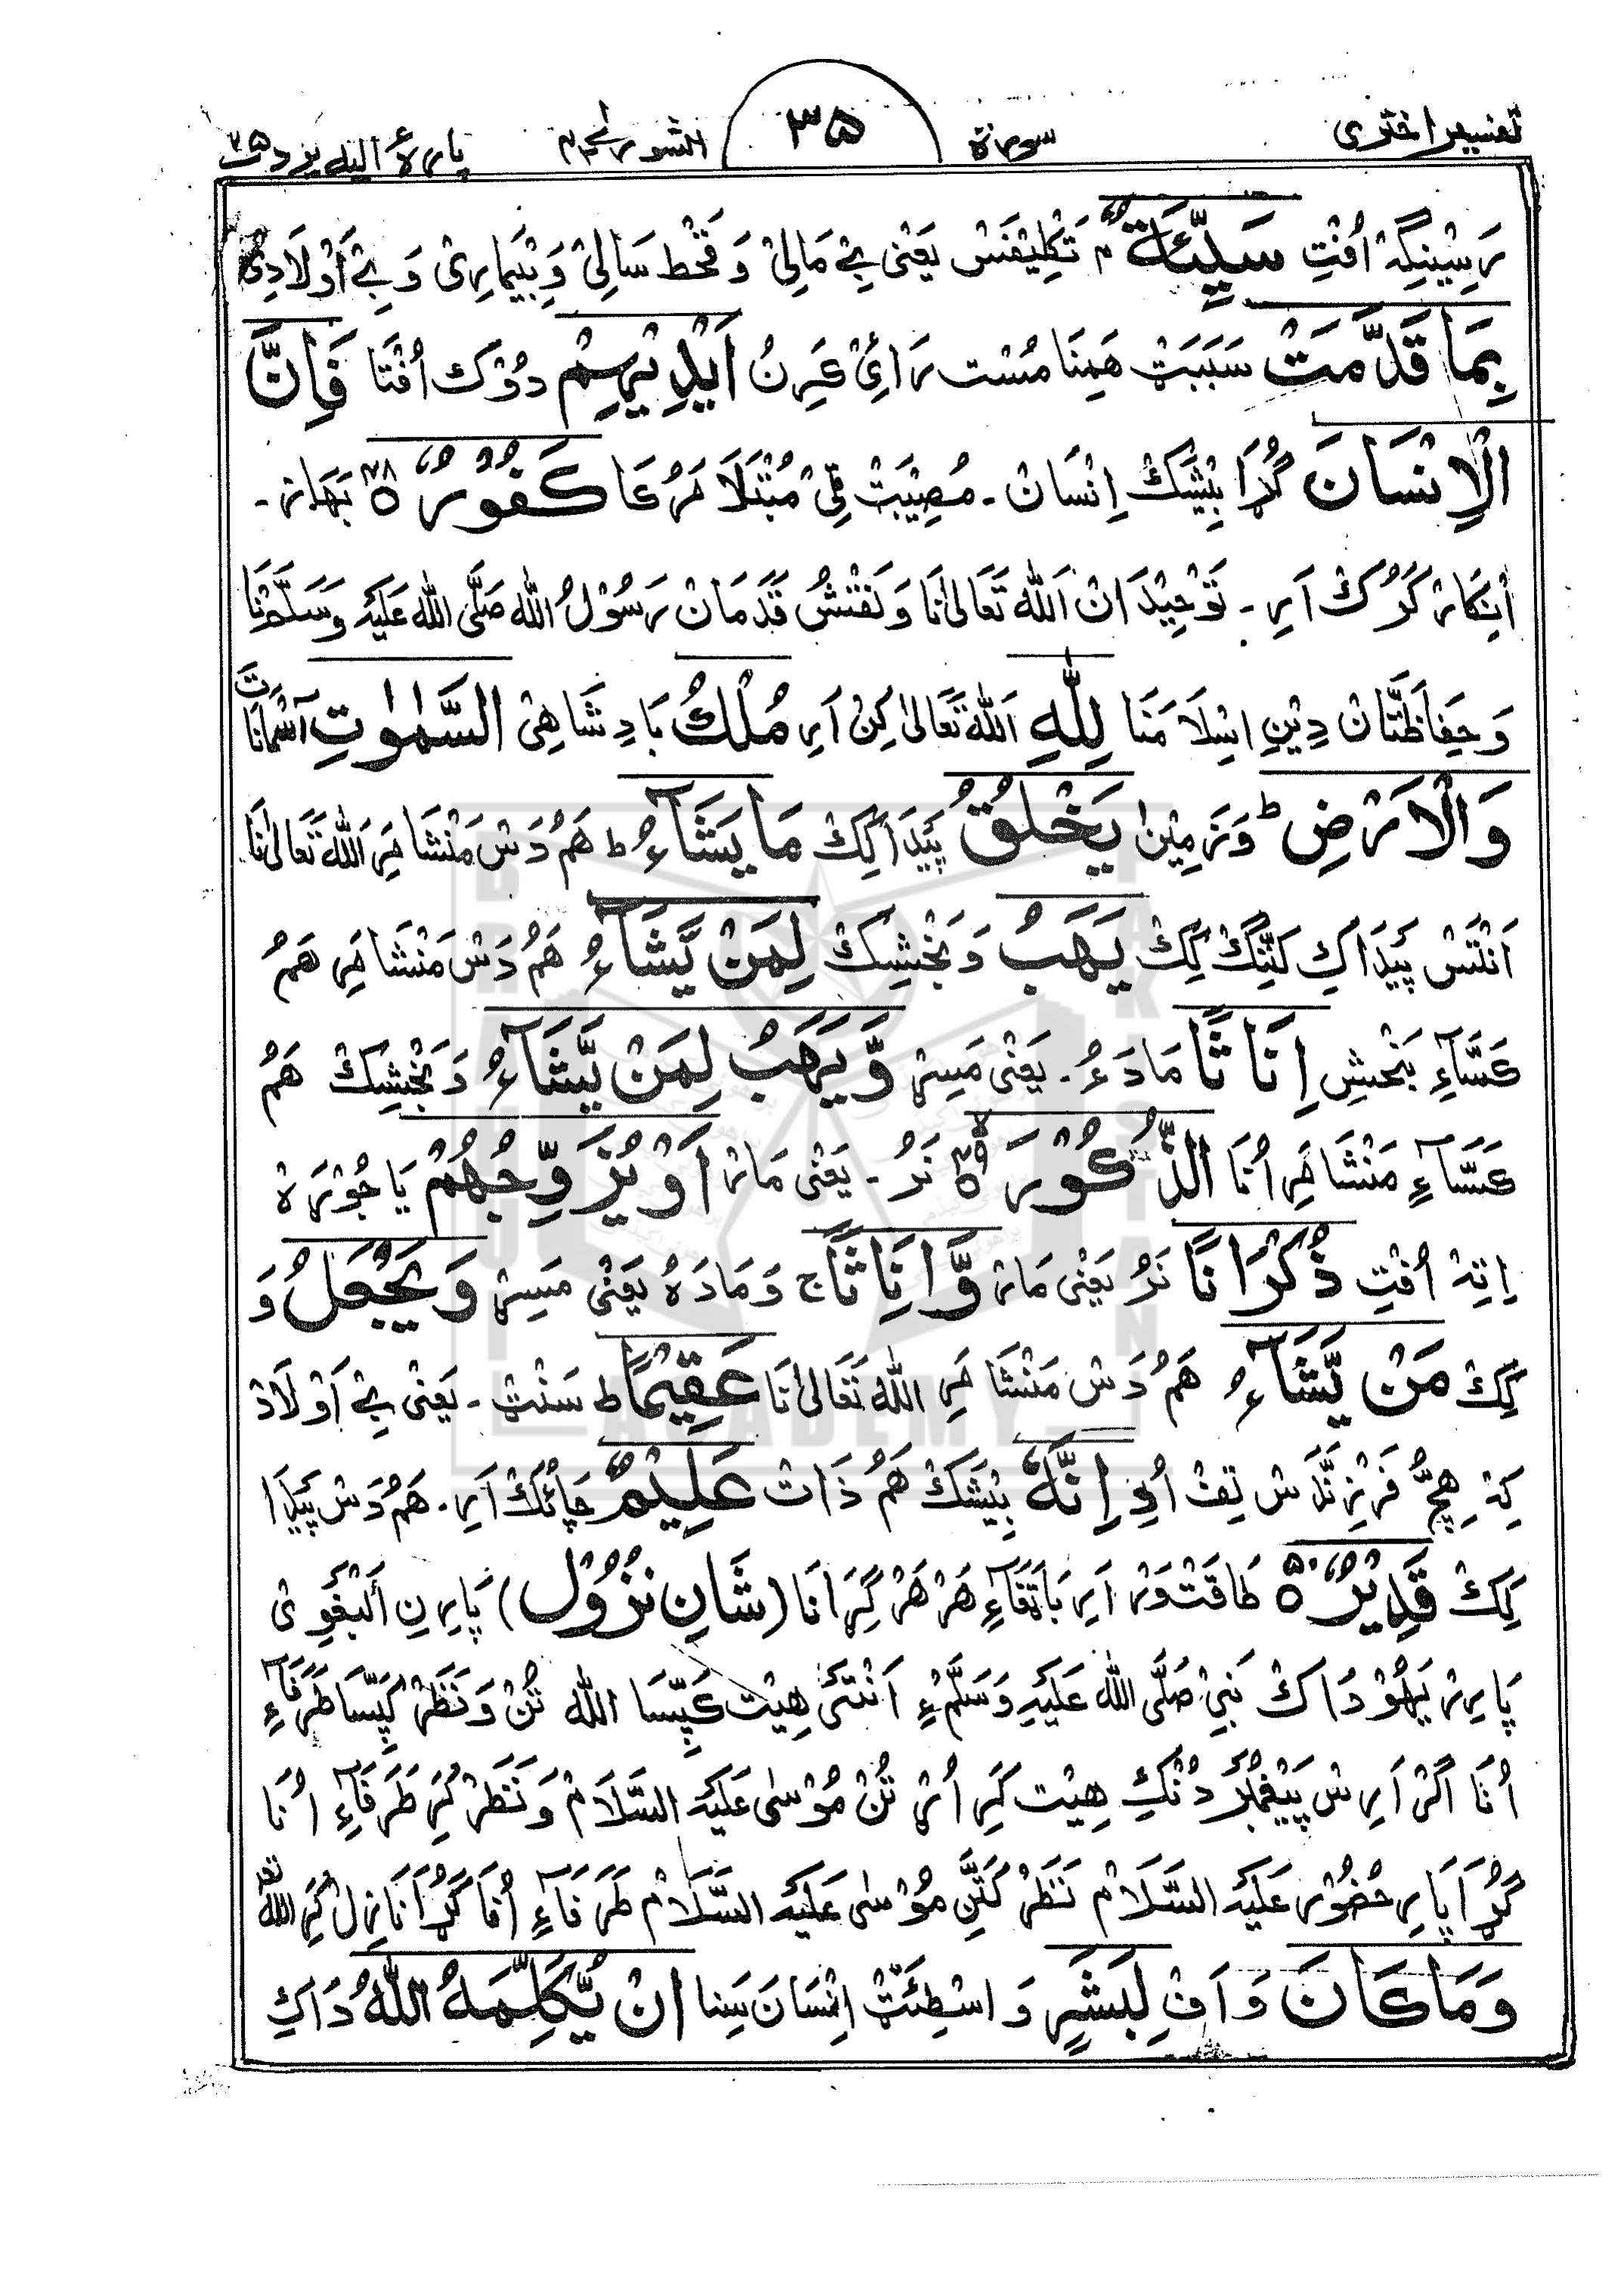 تفسیر اختری سورۃ ۳۵ الشوریٰ ۴۲ پارۂ الیہ یرد ۲۵
رَسِیْنِگِہْ اُفْتِ سَیِّئَةٌۢ تَکلِیْفَسْ یَعْنِی بِےْ مَالِیْ وَ قَحْط سَالِیْ وَبِیْمَارِیْ وَ بِےْ اَوْلَادِیْ
بِمَا قَدَّمَتْ سَبَبَتْ هَمِنَا مُسْت رَائِیْ کَرِنُ اَیْدِیْهِمْ دُوْک اُفْتَا فَاِنَّ
الْاِنْسَانَ گُڑَا بِیْشَکْ اِنْسَان ۔ مُصِیْبَتْ ٹِیْ مُبْتَلَا مَرُعَا کَفُوْرٌ ۝۴۸ بَهَاز ۔
اِنْکَار کَرُکْ اَرِ ۔ تَوْحِیْدَان اَللّٰه تَعَالیٰ نَا وَ نَقْش قَدَمَان رَسُوْلُ اللّٰه صَلَّی اللّٰه عَلَیْهِ وَسَلَّمْ نَا
وَ حِفَاظَتَان دِیْنِ اسْلَامَنَا لِلّٰهِ اَللّٰه تَعَالیٰ کِنْ اَرِ مُلْكُ بَادِشَاهِیْ السَّمٰوٰتِ آسْمَانَاتَ
وَالْاَرْضِ ؕ وَ زَمِیْن یَخْلُقُ پَیْدَا کِکْ مَا یَشَآءُ ؕ هَمُ دَسْ مَنْشَا مَرِ اَللّٰه تَعَالیٰ نَا
اَنْتَسْ پَیْدَا کِ کَنِّنْگْ کِکْ یَهَبُ وَ بَخْشِکْ لِمَنْ یَّشَآءُ هَمُ دَسْ مَنْشَا مَرِ هَمُ
کَسَّآءِ بَخْشِ اِنَاثًا مَادَهُ ۔ یَعْنِی مَسِڑ وَّ یَهَبُ لِمَنْ یَّشَآءُ وَ بَخْشِکْ هَمُ
کَسَّآءِ مَنْشَا مَرِ اُنَا الذُّکُوْرَ ۝۴۹ۙ نَرُ ۔ یَعْنِی مَار اَوْ یُزَوِّجُهُمْ یَا جُوْرَہْ
اِتِہْ اُفْتِ ذُکْرَانًا نَرُ یَعْنِی مَار وَّ اِنَاثًا ۚ وَ مَادَهُ یَعْنِی مَسِڑ وَ یَجْعَلُ وَ
کِکْ مَنْ یَّشَآءُ هَمُ دَسْ مَنْشَا مَرِ اللّٰه تَعَالیٰ نَا عَقِیْمًا ؕ سَنْٹ ۔ یَعْنِی بِےْ اَوْلَادْ
کِہْ هِچُّ فَرْزِنْدَسْ تِفْ اُڑِ اِنَّهٗ بِیْشَکْ هَمُ ذَات عَلِیْمٌ چَائُکْ اَرِ ۔ هَمُ دَسْ پَیْدَا
کِکْ قَدِیْرٌ ۝۵۰ طَاقَتْوَر اَرِ بَاتَفَآءِ هَرْ هَرْ گِرَانَا (شَانِ نُزُوْل) پَارِنِ اَلْبَغَوِیْ
پَارِر یَهُوْدَاکْ نَبِیْ صَلَّی اللّٰه عَلَیْهِ وَسَلَّمْءِ اَنْتَئَے هِیْت کَپِّسَا اللّٰه تُنْ وَ نَظَرْ کَپِّسَا طَرَفَآءِ
اُنَا اَگَرْ اَرِسْ پَیْغَمْبَرْ دُنْکِ هِیْت کَرِ اُڑْ تُنْ مُوْسٰی عَلَیْهِ السَّلَامْ وَ نَظَرْ کَرِ طَرَفَآءِ اُنَا
گُڑَا پَارِ حُضُوْر عَلَیْهِ السَّلَامْ نَظَرْ کَتَنِ مُوْسٰی عَلَیْهِ السَّلَامْ طَرَفَآءِ اُفَا گُڑَا نَازِل کَرِ اللّٰه تع
وَ مَا کَانَ وَ اَفْ لِبَشَرٍ وَ اسْطِئَتْ اِنْسَانَسِنا اَنْ یُّکَلِّمَهُ اللّٰهُ دَاکِ